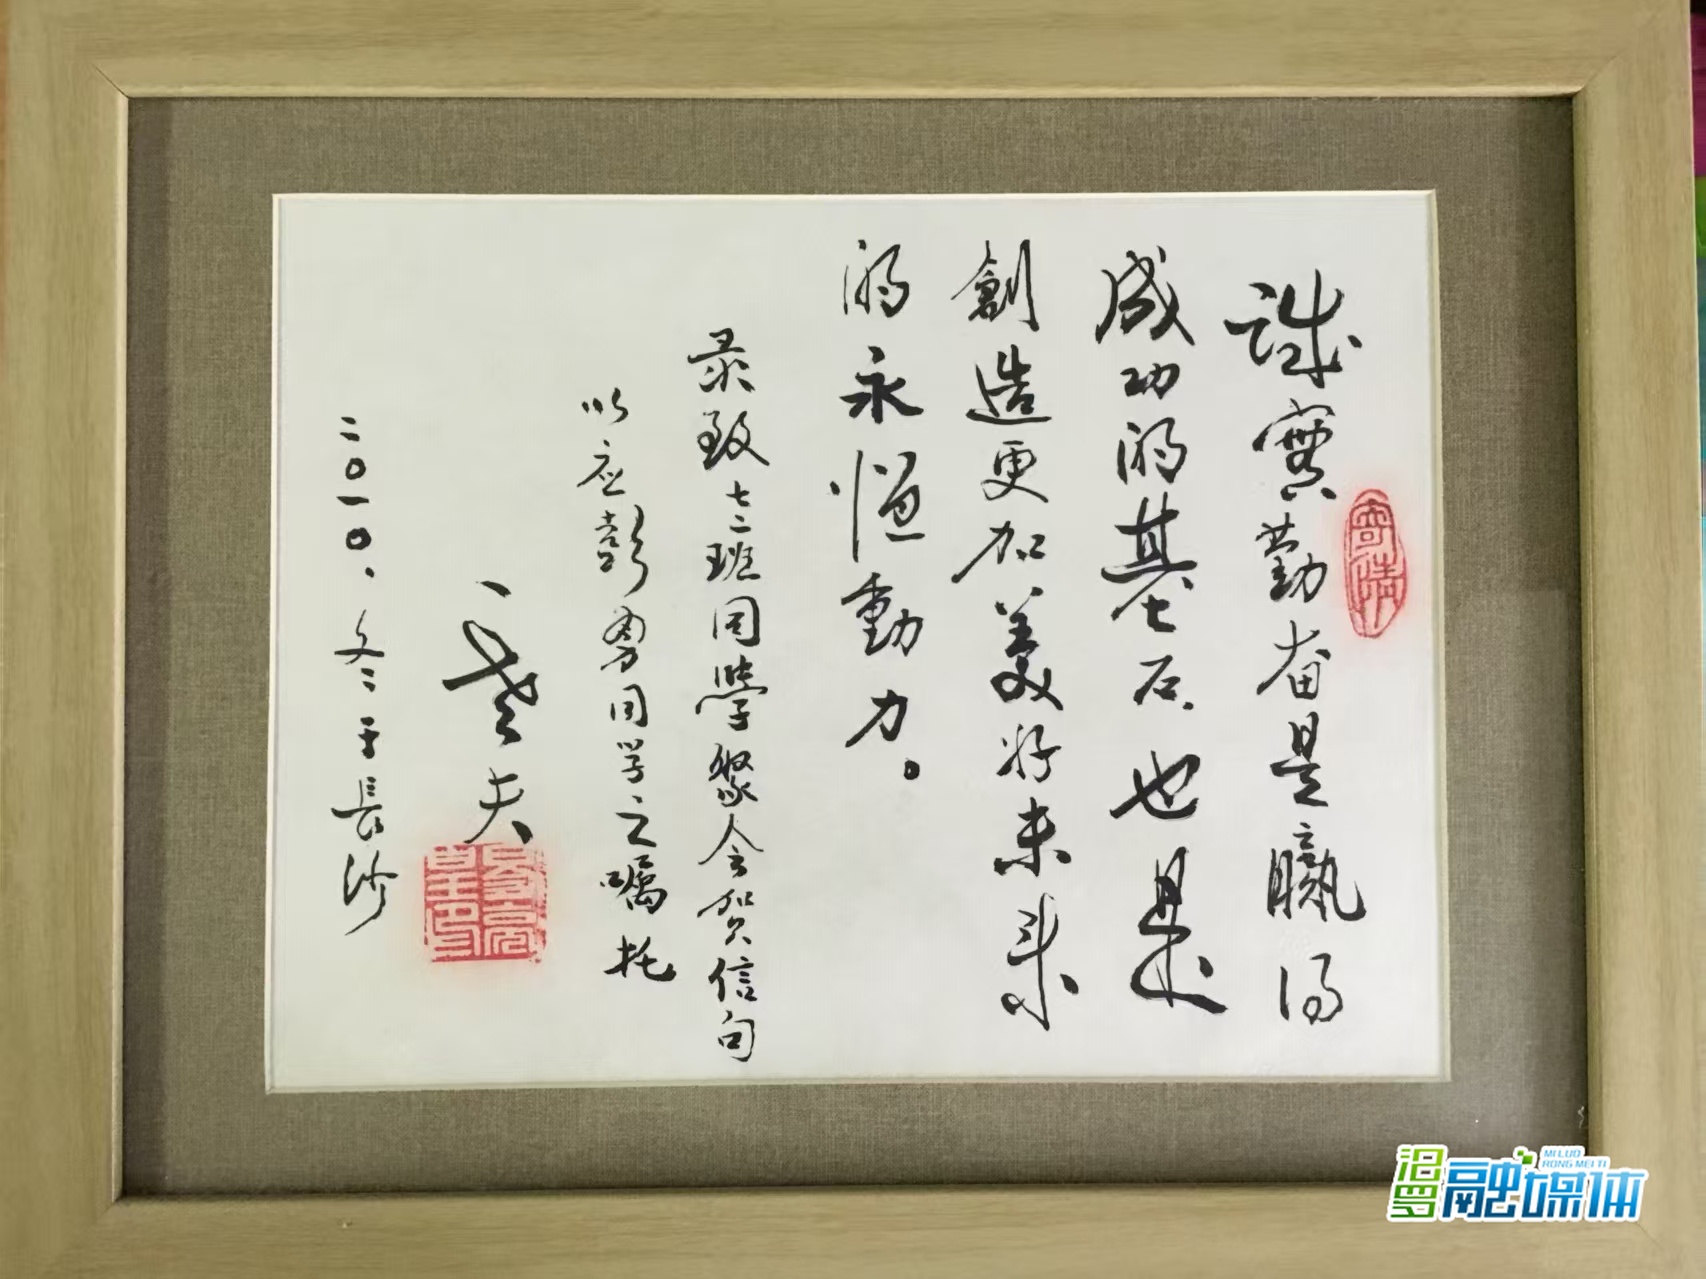 诚實勤奋是贏得
成功的基石也是
創造更加美好未来
的永恒動力。
录致七二班同學聚会贺信句
以应彭勇同学之嘱托
夫
二〇一〇.冬于長沙
寄情
汨罗融媒体
MI LUO
RONG MEI TI